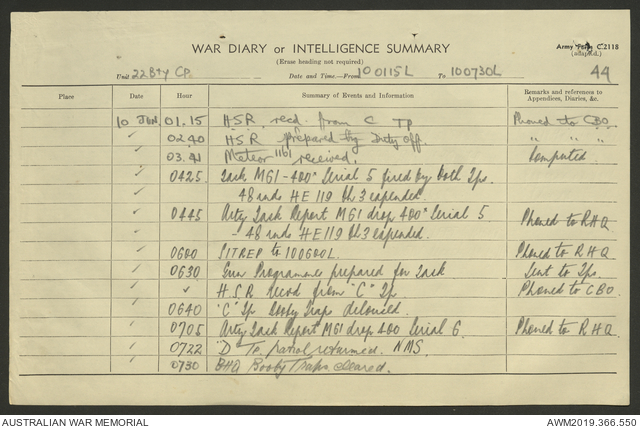 WAR DIARY or INTELLIGENCE SUMMARY
(Erase heading not required)
Army Form C.2118
(adapted.)
Unit 22 Bty CP. Date and Time—From 100115L To 100730L 44
Place Date Hour Summary of Events and Information Remarks and references to Appendices, Diaries, &c.
10 JUN 01.15 H.S.R. recd. from C Tp Phoned to CBO
✓ 02.40 H S R prepared by Duty off. " " "
✓ 03.41 Meteor 1161 received. Computed
✓ 0425 Task MG1-400" Serial 5 fired by both Tps.
✓ 48 rnds HE 119 Ch 3 expended.
✓ 0445 Arty Task Report MG1 drop 400" Serial 5 Phoned to RHQ
✓ - 48 rnds HE 119 Ch 3 expended.
✓ 0600 SITREP to 100600L Phoned to RHQ
✓ 0630 Gun Programme prepared for Task Sent to Tps.
✓ H.S.R Recvd from "C" Tp Phoned to CBO
✓ 0640 "C" Tp Booby Traps deloused.
✓ 0705 Arty Task Report MG1 drop 400 Serial 6. Phoned to RHQ
✓ 0722 "D" Tp. patrol returned. NMS.
✓ 0730 BHQ Booby Traps cleared.
AUSTRALIAN WAR MEMORIAL
AWM2019.366.550